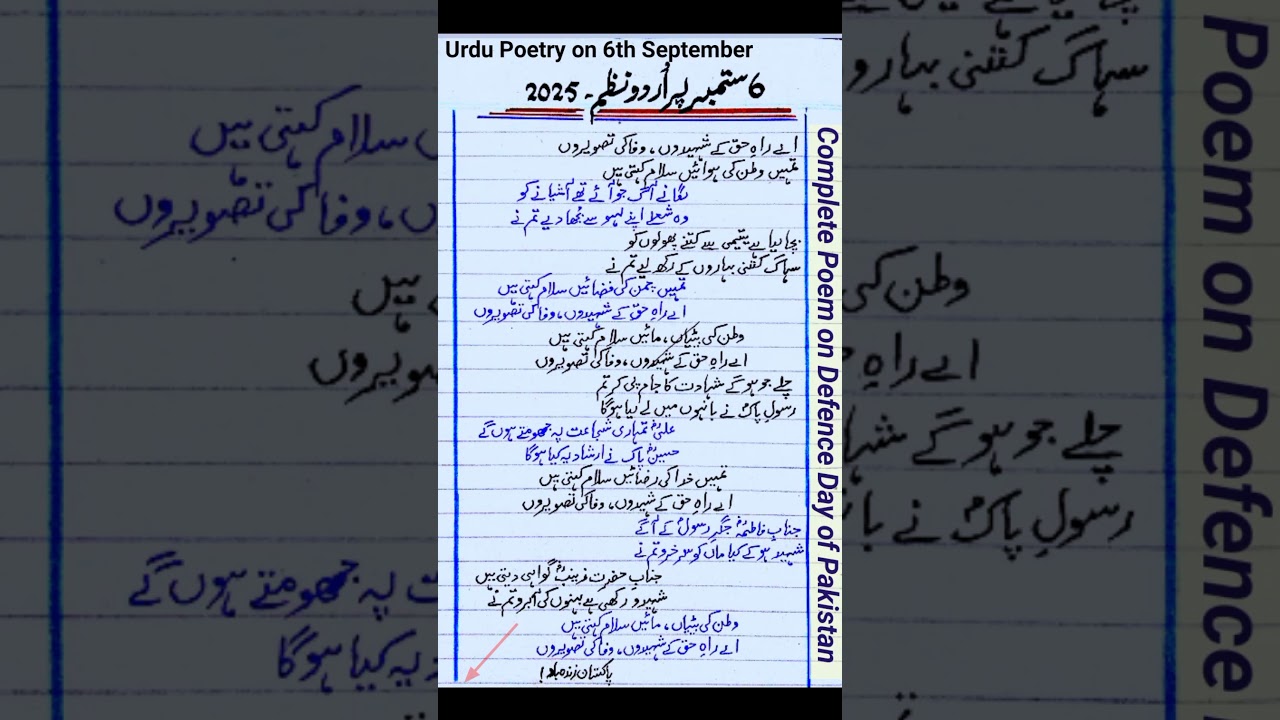 Urdu Poetry on 6th September
6 ستمبر پر اُردو نظم ۔ 2025
اے راہِ حق کے شہیدوں ، وفا کی تصویروں
تمہیں وطن کی ہوائیں سلام کہتی ہیں
لگانے آگ جو آئے تھے آشیانے کو
وہ شعلے اپنے لہو سے بجھا دیے تم نے
بچا لیا ہے یتیمی سے کتنے پھولوں کو
سہاگ کتنی بہاروں کے رکھ لیے تم نے
تمہیں چمن کی فضائیں سلام کہتی ہیں
اے راہِ حق کے شہیدوں ، وفا کی تصویروں
وطن کی بیٹیاں ، مائیں سلام کہتی ہیں
اے راہِ حق کے شہیدوں ، وفا کی تصویروں
چلے جو ہوگے شہادت کا جام پی کر تم
رسولِ پاکؐ نے بانہوں میں لے لیا ہوگا
علیؓ تمہاری شجاعت پہ جھومتے ہوں گے
حسینؓ پاک نے ارشاد یہ کیا ہوگا
تمہیں خدا کی رضائیں سلام کہتی ہیں
اے راہِ حق کے شہیدوں ، وفا کی تصویروں
جناب فاطمہؓ جگرِ رسولؐ کے آگے
شہید ہو کے کیا ماں کو سرخرو تم نے
جناب حضرت زینبؓ گواہی دیتی ہیں
شہیدو رکھی ہے بہنوں کی آبرو تم نے
وطن کی بیٹیاں ، مائیں سلام کہتی ہیں
اے راہِ حق کے شہیدوں ، وفا کی تصویروں
پاکستان زندہ باد !
Complete Poem on Defence Day of Pakistan